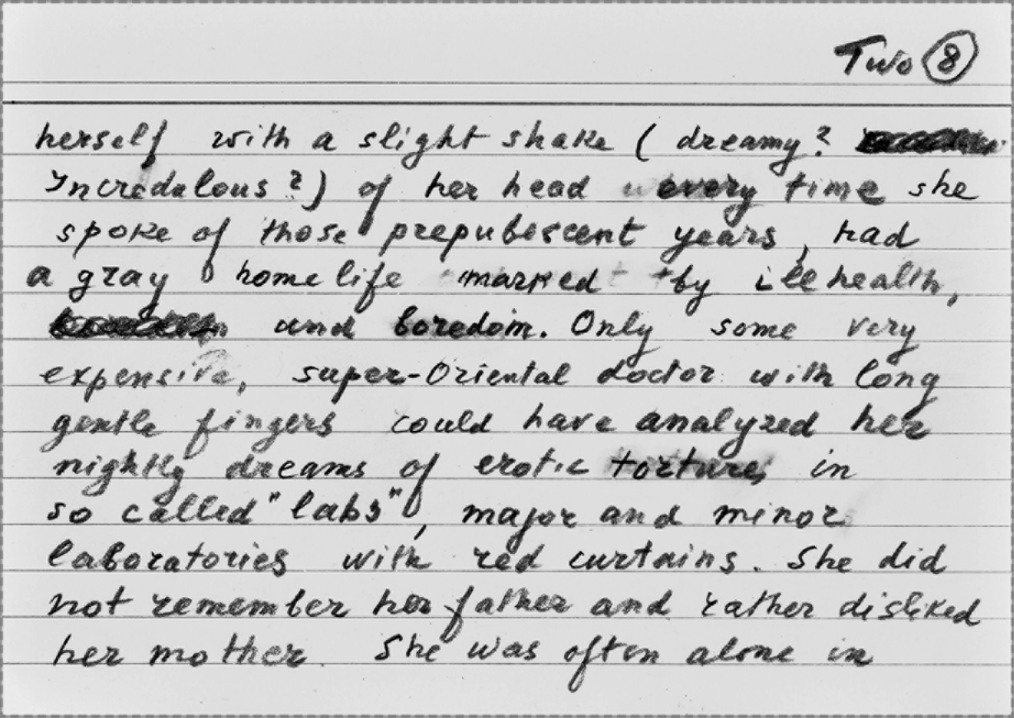 Two 8
herself with a slight shake ( dreamy?
Incredulous?) of her head every time she
spoke of those prepubescent years, had
a gray home life marked by ill health,
and boredom. Only some very
expensive, super-Oriental doctor with long
gentle fingers could have analyzed her
nightly dreams of erotic torture in
so called "labs", major and minor
laboratories with red curtains. She did
not remember her father and rather disliked
her mother. She was often alone in